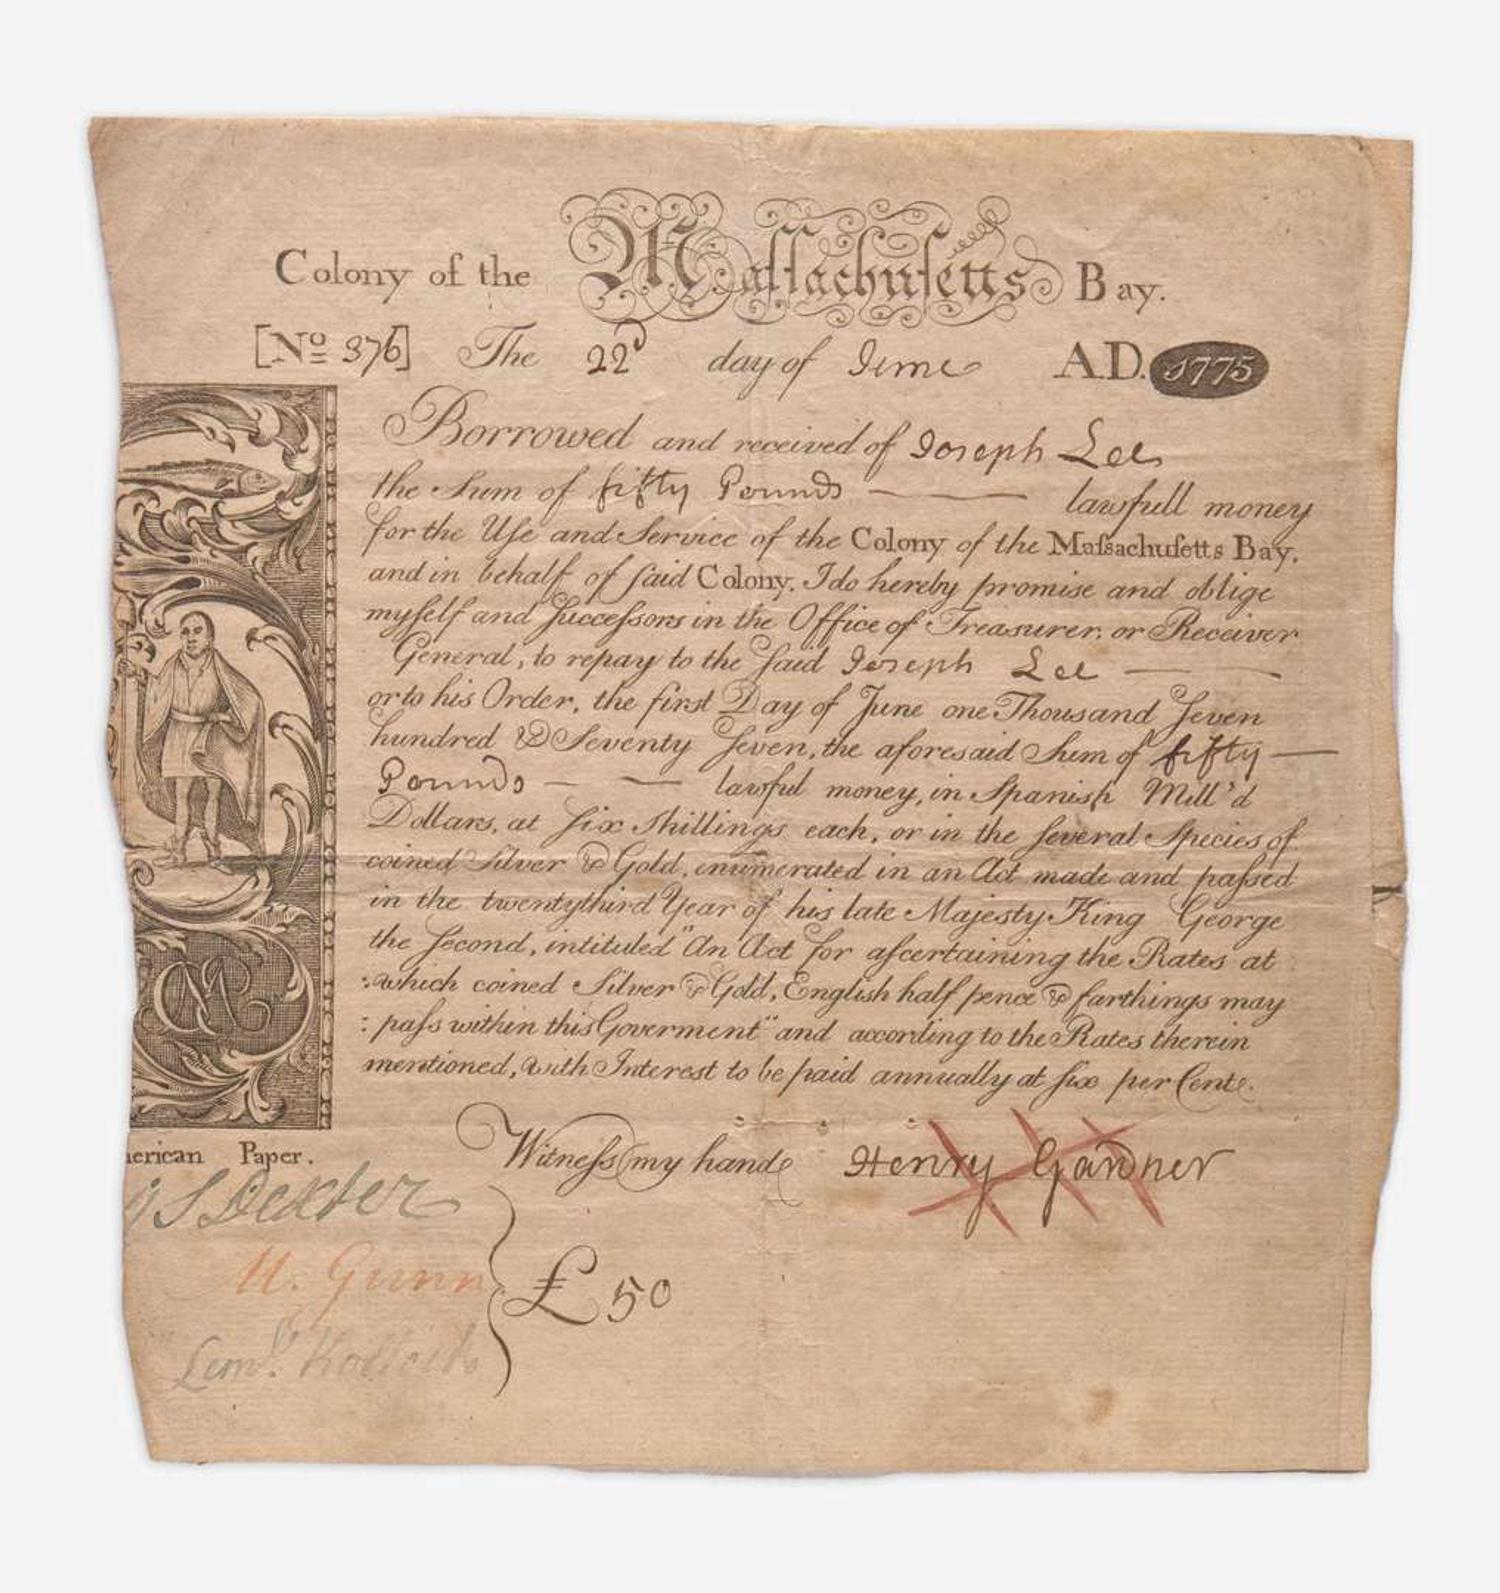 Colony of the Maſſachuſetts Bay.
[No 376] The 22d day of June A.D. 1775
Borrowed and received of Joseph Lee
the Sum of fifty Pounds — lawfull money
for the Uſe and Service of the Colony of the Maſsachuſetts Bay.
and in behalf of ſaid Colony. I do hereby promise and oblige
myſelf and Succeſsors in the Office of Treasurer, or Receiver
General, to repay to the ſaid Joseph Lee —
or to his Order, the first Day of June one Thousand Seven
hundred & Seventy Seven, the aforesaid Sum of fifty —
Pounds — — lawful money, in Spanish Mill'd
Dollars, at ſix Shillings each, or in the ſeveral Species of
coined Silver & Gold, enumerated in an Act made and paſsed
in the twentythird Year of his late Majesty King George
the Second, intituled "An Act for aſcertaining the Rates at
:which coined Silver & Gold, English half pence & farthings may
: paſs within this Goverment" and according to the Rates therein
mentioned, with Interest to be paid annually at ſix per Cent.
CM
erican Paper.
Witneſs my hand Henry Gardner
S Dexter
M. Gunn
Leml. Kollock
£ 50